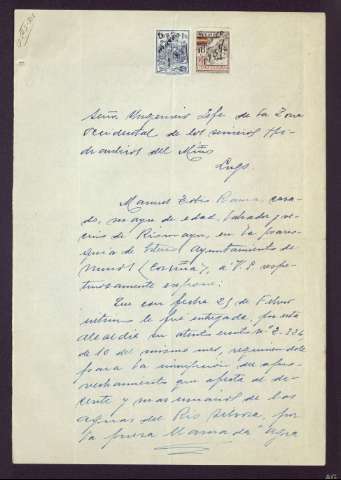 Señor Ingeniero Jefe de la Zona
Occidental de los servicios Hi-
draulicos del Miño
Lugo.
Manuel Rama, casa-
do, mayor de edad, labrador y ve-
cino de en la parro-
quia de Ayuntamiento de
(Coruña), a V.S. respe-
tuosamente expone:
Que con fecha 29 de Febrero
ultimo le fue entregado, por esta
alcaldia un atento escrito nº 2.326
de 10 del mismo mes, requiriendole
para la inscripcion del apro-
vechamiento que afecta el di-
cente y mas usuarios de las
aguas del Rio por
la presa llamada